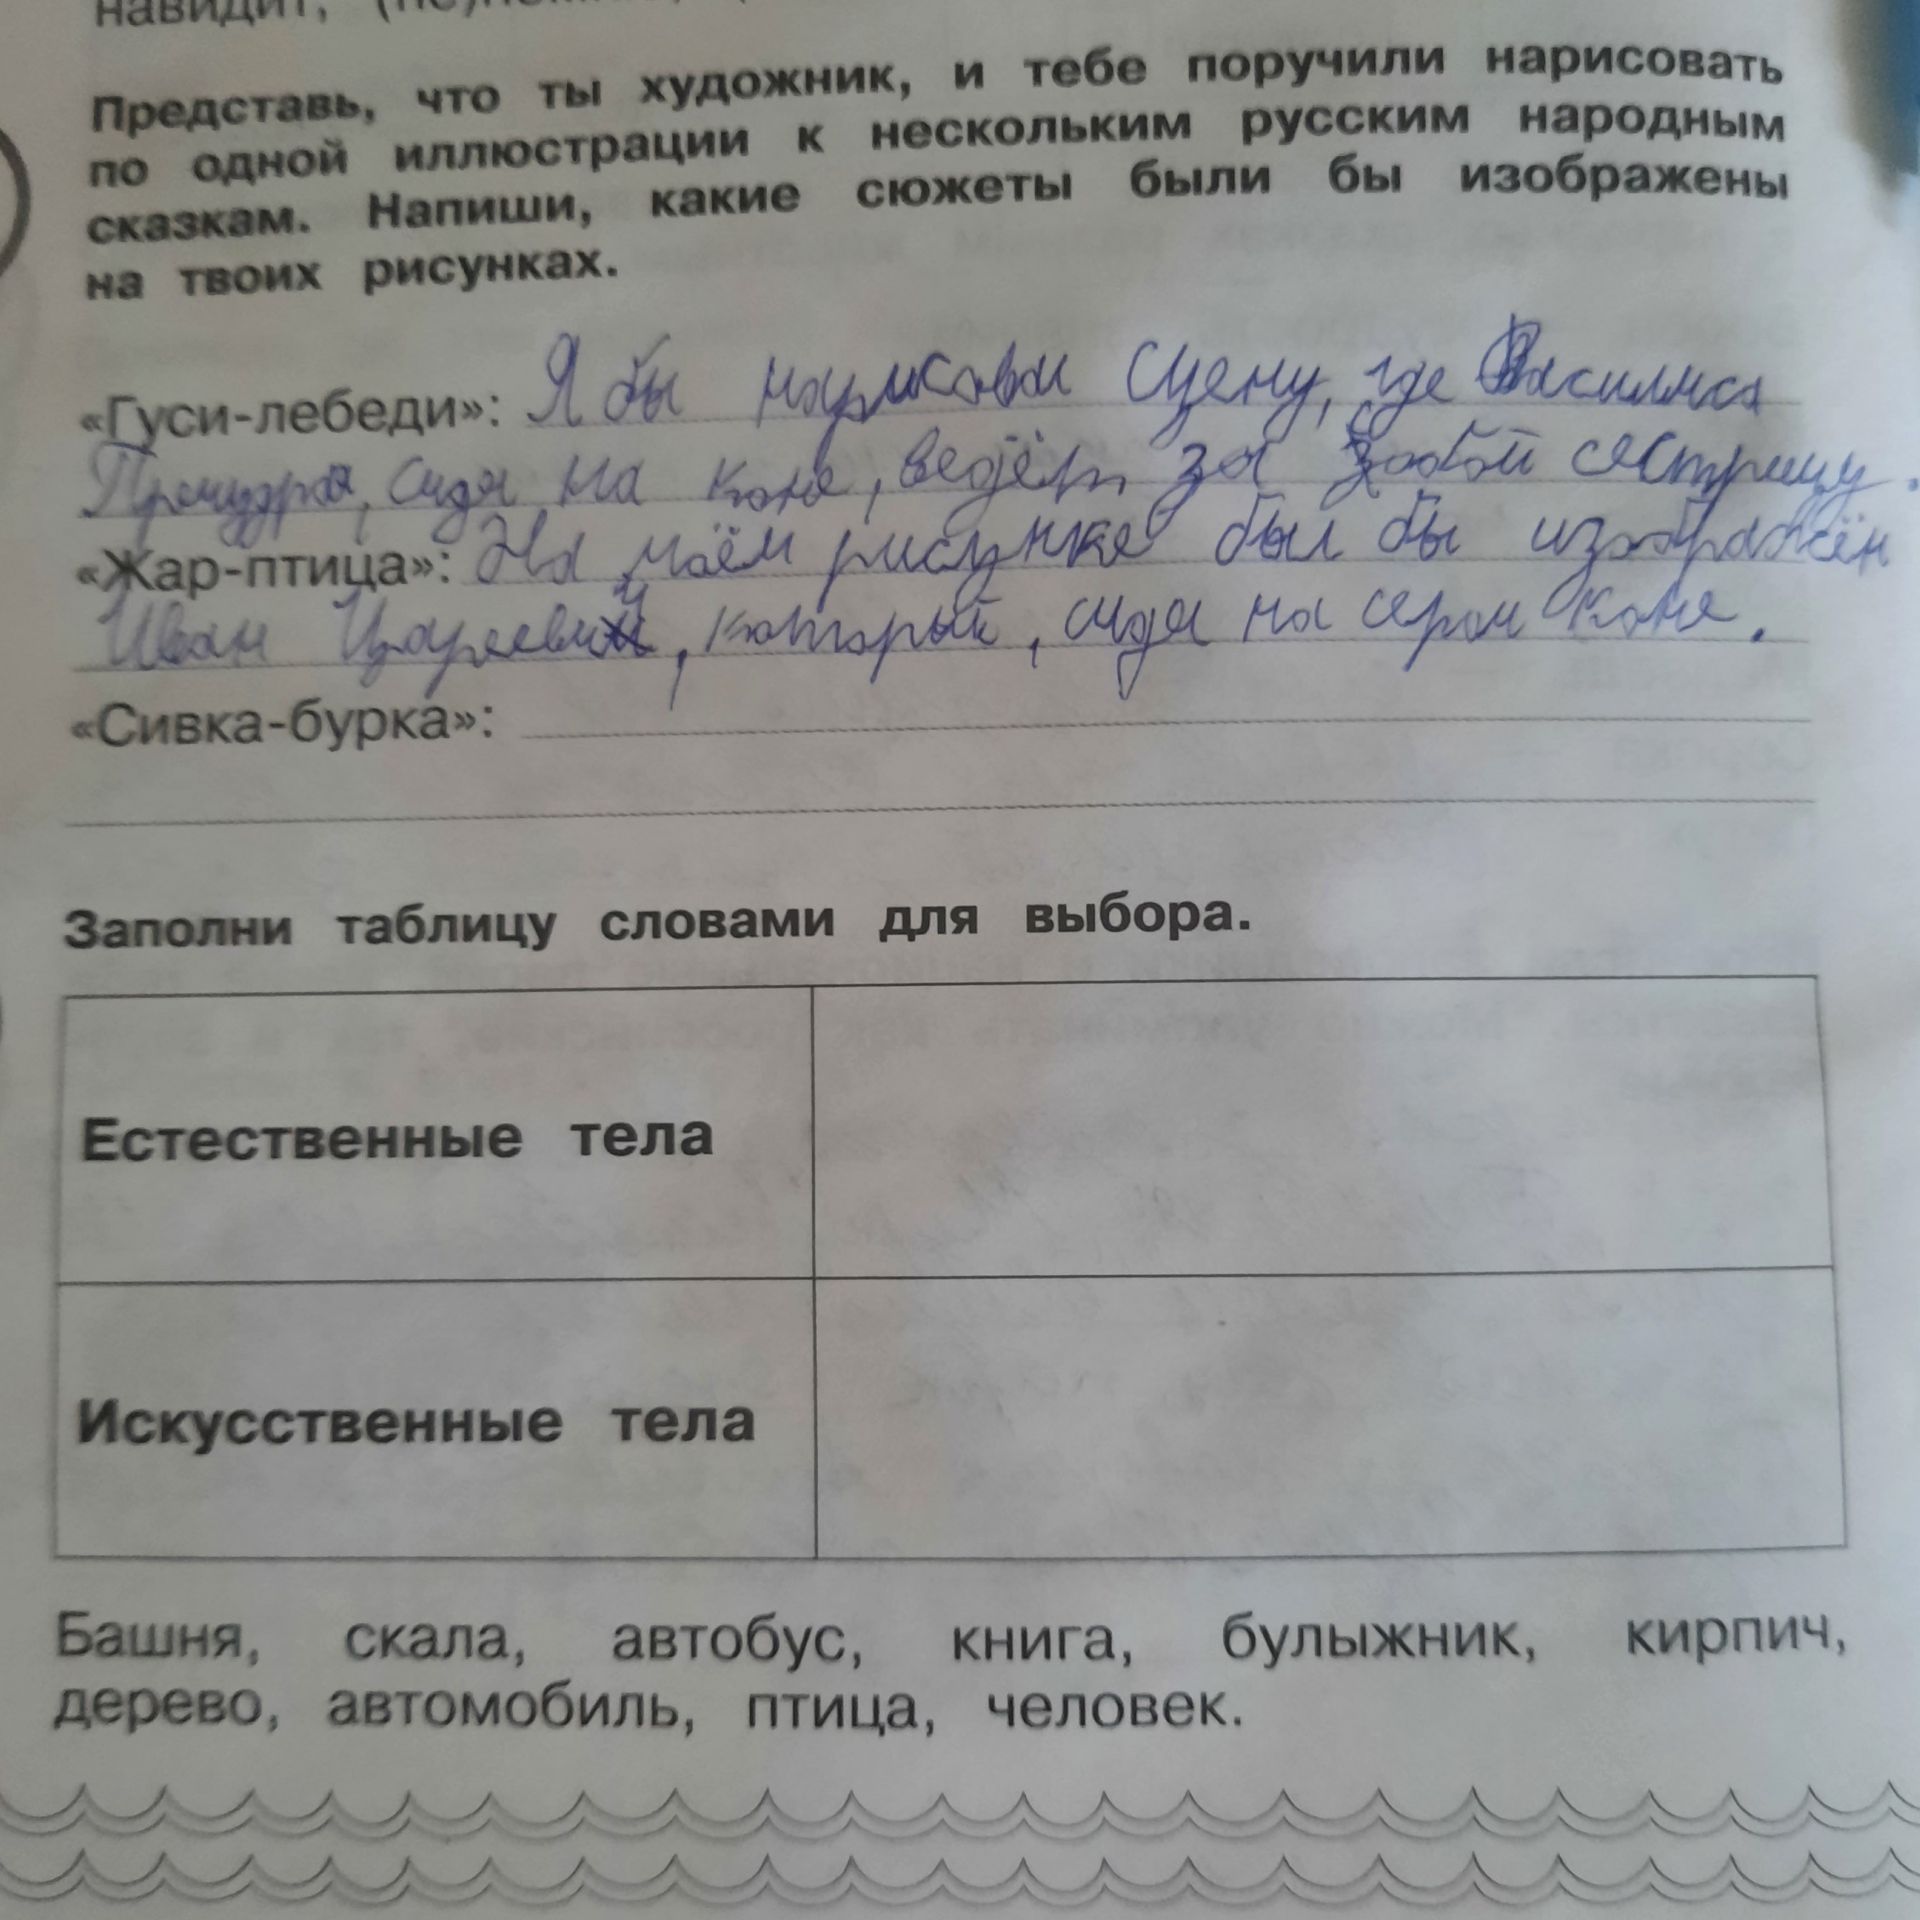 Представь, что ты художник, и тебе поручили нарисовать
по одной иллюстрации к нескольким русским народным
сказкам. Напиши, какие сюжеты были бы изображены
на твоих рисунках.
«Гуси-лебеди»: Я бы нарисовал сцену, где Василиса
Премудрая, сидя на коне, ведёт за собой сестрицу.
«Жар-птица»: На моём рисунке был бы изображён
Иван Царевич, который, сидя на сером коне.
«Сивка-бурка»:
Заполни таблицу словами для выбора.
Естественные тела
Искусственные тела
Башня, скала, автобус, книга, булыжник, кирпич,
дерево, автомобиль, птица, человек.